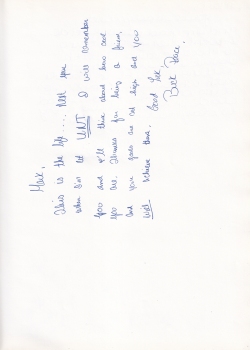 Hark,
This is the life.... next year
when I'm at UNT I will remember
you and I'll think about how cool
you are. Thanks for being a friend,
and your goals are set high and you
will achieve them. Good luck